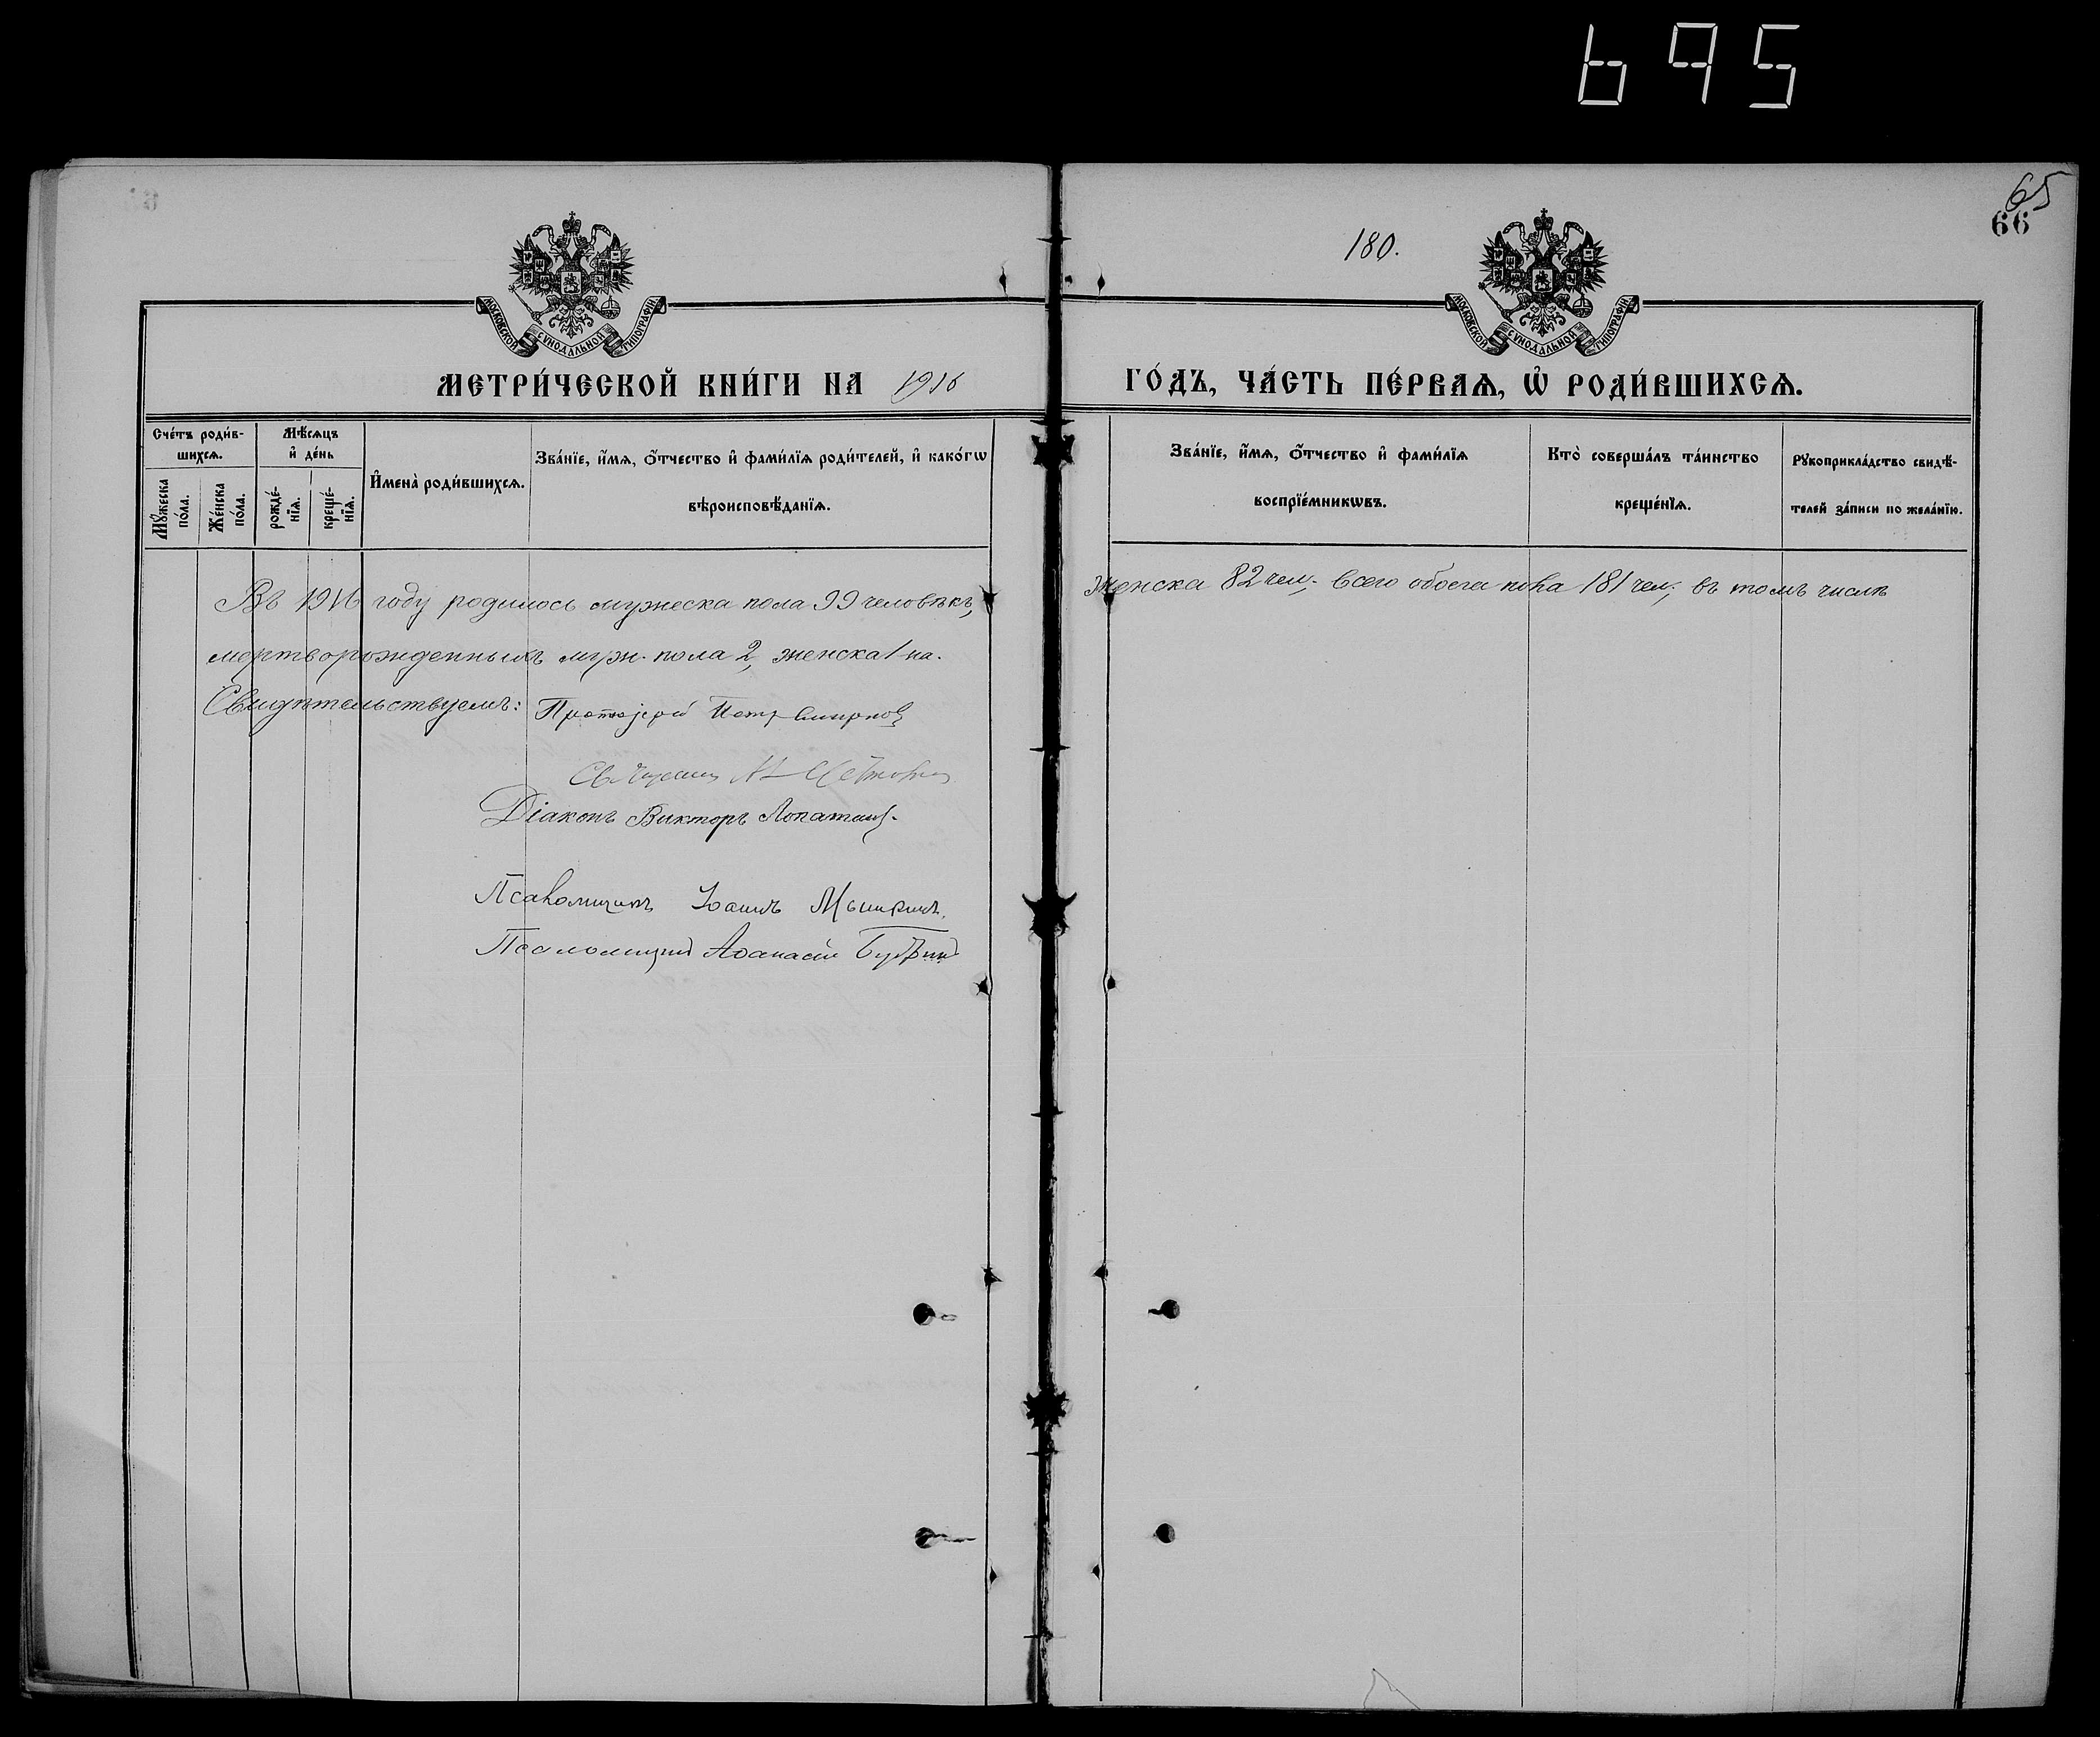 695
65
66
180.
МОСКОВСКОЙ СѴНОДАЛЬНОЙ ТИПОГРАФІИ
МОСКОВСКОЙ СѴНОДАЛЬНОЙ ТИПОГРАФІИ
МЕТРИ́ЧЕСКОЙ КНИ́ГИ НА 1916 ГО́ДЪ, ЧА́СТЬ ПЕ́РВАѦ, Ѽ РОДИ́ВШИХСѦ.
Сче́тъ роди́в-
шихсѧ.
Мꙋ́жеска по́ла.
Же́нска по́ла.
Мѣ́сѧцъ и҆ де́нь
рожде́-нїѧ.
креще́-нїѧ.
И҆мена̀ роди́вшихсѧ.
Зва́нїе, и҆́мѧ, ѻ҆́тчество и҆ фами́лїѧ роди́телей, и҆ како́гѡ
вѣроисповѣ́данїѧ.
Зва́нїе, и҆́мѧ, ѻ҆́тчество и҆ фами́лїѧ
воспрїе́мникѡвъ.
Кто̀ соверша́лъ та́инство
креще́нїѧ.
Рꙋкоприкла́дство свидѣ́-
телей за́писи по жела́нїю.
Въ 1916 году родилось мужеска пола 99 человѣкъ, женска 82 чел., всего обоего пола 181 чел., въ томъ числѣ
мертворожденныхъ муж. пола 2, женска 1-на.
Свидѣтельствуемъ: Протоіерей Петр Смирнов
Діаконъ Викторъ Лопатинъ.
Псаломщикъ Іоаннъ
Псаломщикъ Аѳанасій